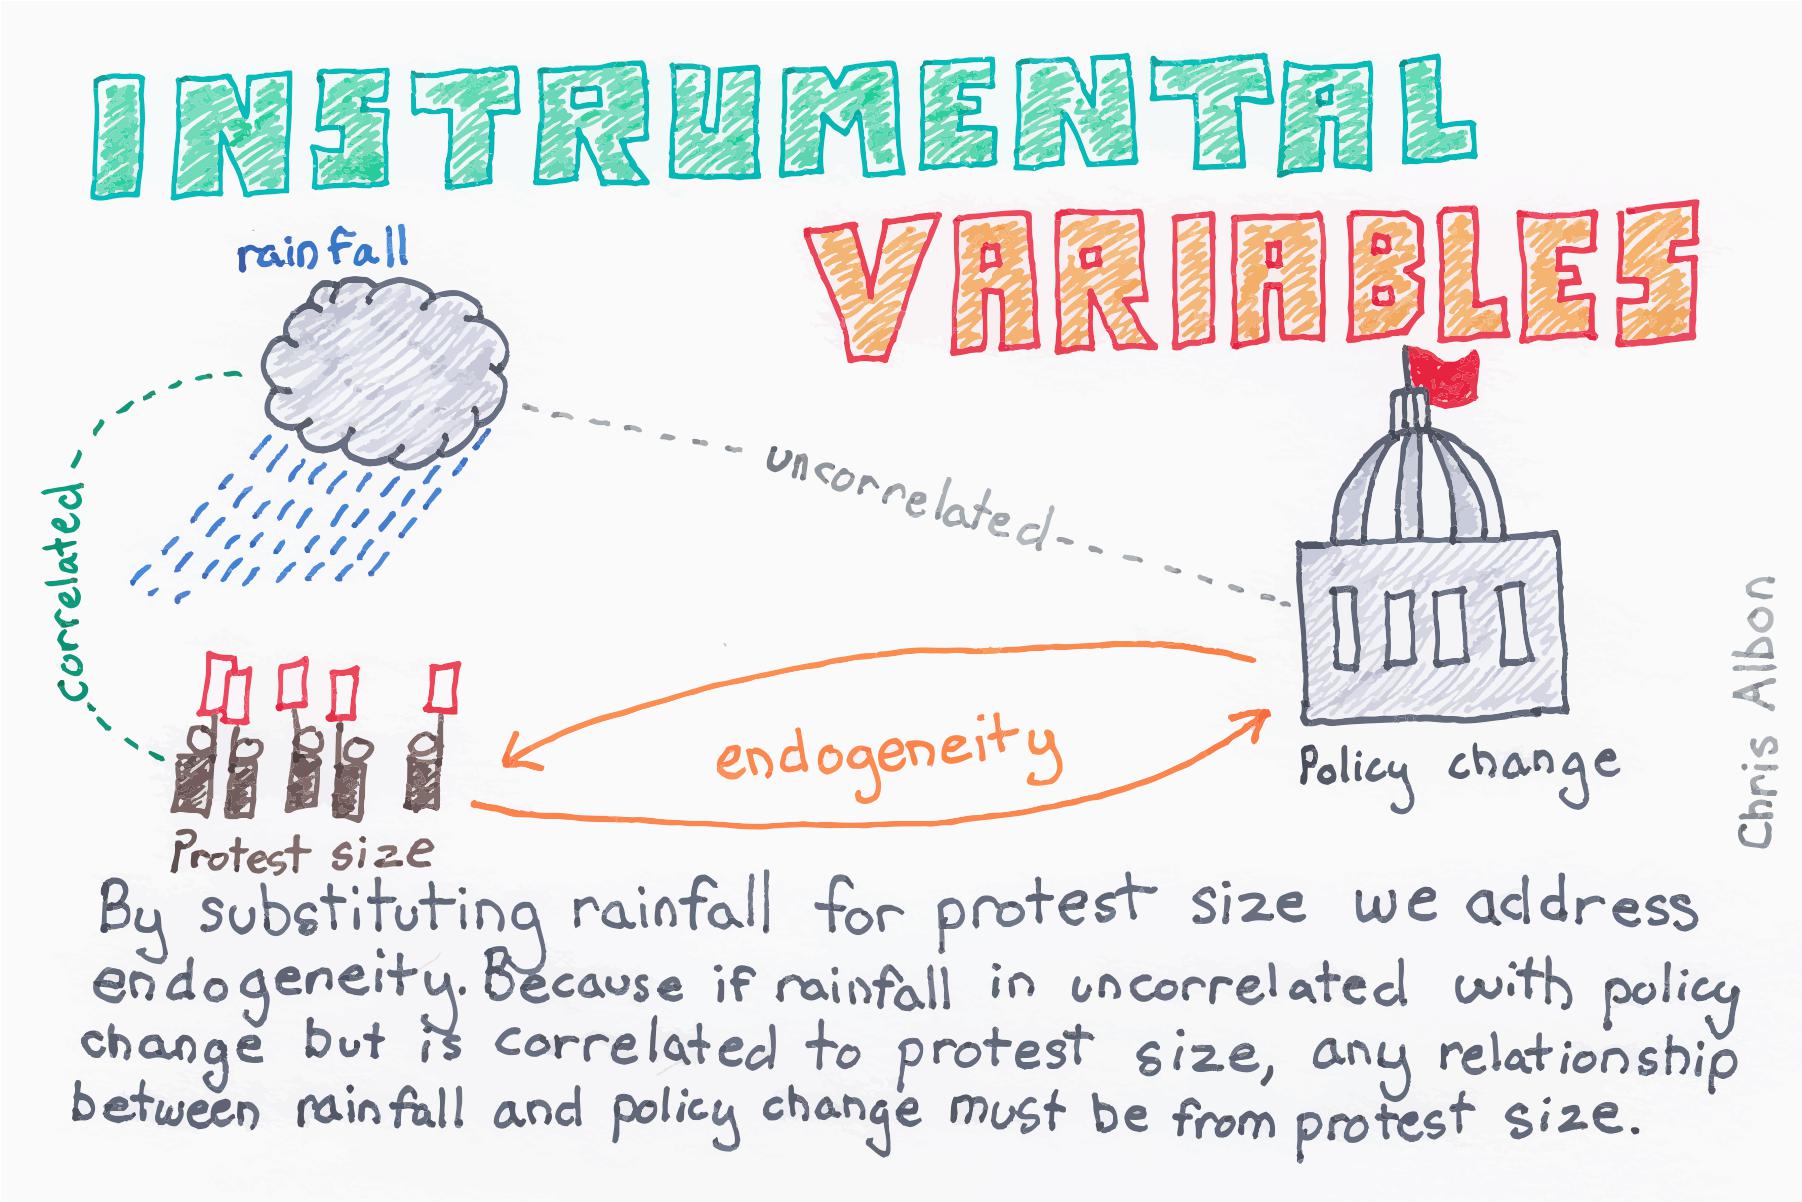 INSTRUMENTAL
VARIABLES
rainfall
uncorrelated
correlated
endogeneity
Policy change
Protest size
Chris Albon
By substituting rainfall for protest size we address
endogeneity. Because if rainfall in uncorrelated with policy
change but is correlated to protest size, any relationship
between rainfall and policy change must be from protest size.